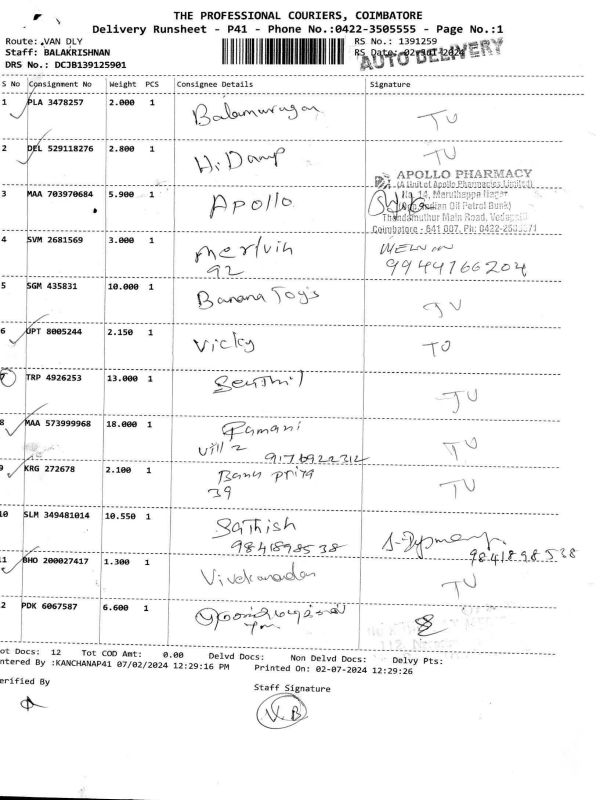 THE PROFESSIONAL COURIERS, COIMBATORE
Delivery Runsheet - P41 - Phone No.:0422-3505555 - Page No.:1
Route: VAN DLY RS No.: 1391259
Staff: BALAKRISHNAN RS Date: 02-Jul-2024
AUTO DELIVERY
DRS No.: DCJB139125901
S No Consignment No Weight PCS Consignee Details Signature
1 PLA 3478257 2.000 1 Balamurugan TU
2 DEL 529118276 2.800 1 Hi Damp TU
APOLLO PHARMACY
(A Unit of Apollo Pharmacies Limited)
3 MAA 703970684 5.900 1 Apollo No. 14, Maruthappa Nagar
Indian Oil Petrol Bunk)
Main Road,
Coimbatore - 641 007. Ph: 0422-
4 SVM 2681569 3.000 1 Mervin
92 9944766204
5 SGM 435831 10.000 1 Banana Toys TU
6 UPT 8005244 2.150 1 Vicky TO
7 TRP 4926253 13.000 1 Senthil TU
8 MAA 573999968 18.000 1 Ramani TU
Vill 2 9176922312
9 KRG 272678 2.100 1 Banu priya TU
39
10 SLM 349481014 10.550 1 Sathish
9841898538 9841898538
11 BHO 200027417 1.300 1 Vivekanadan TU
12 PDK 6067587 6.600 1
Tot Docs: 12 Tot COD Amt: 0.00 Delvd Docs: Non Delvd Docs: Delvy Pts:
ntered By :KANCHANAP41 07/02/2024 12:29:16 PM Printed On: 02-07-2024 12:29:26
erified By Staff Signature
V.B